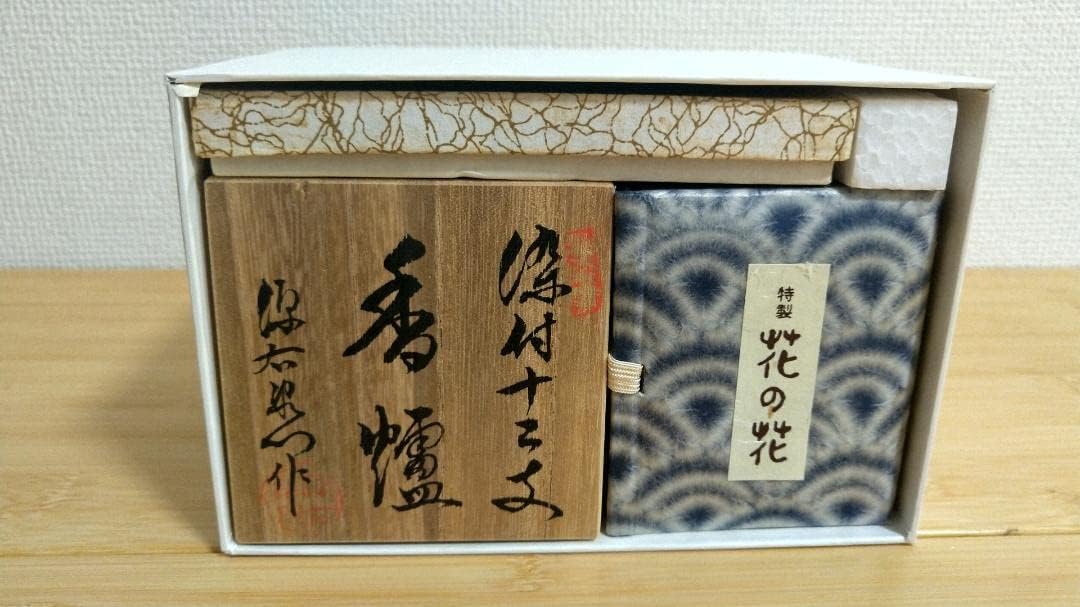 染付十二支
香爐
源右衛門作
特製
花の花